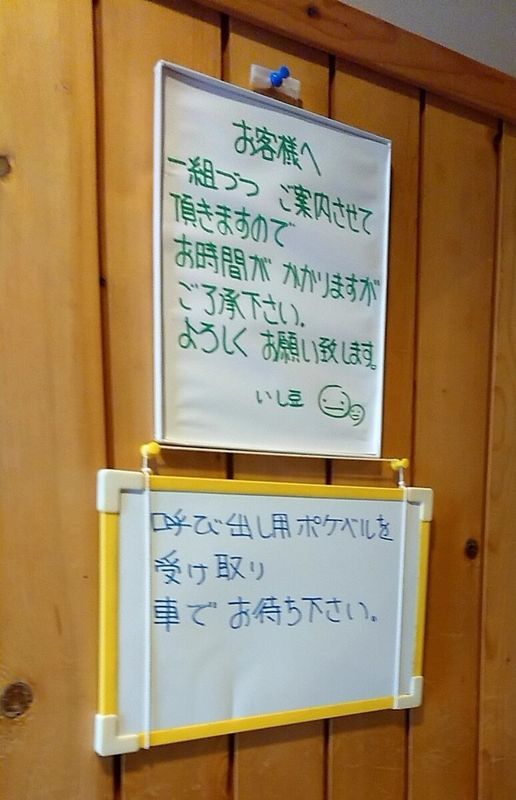 お客様へ
一組づつ ご案内させて
頂きますので
お時間が かかりますが
ご了承下さい.
よろしく お願い致します。
いし豆
呼び出し用ポケベルを
受け取り
車で お待ち下さい。